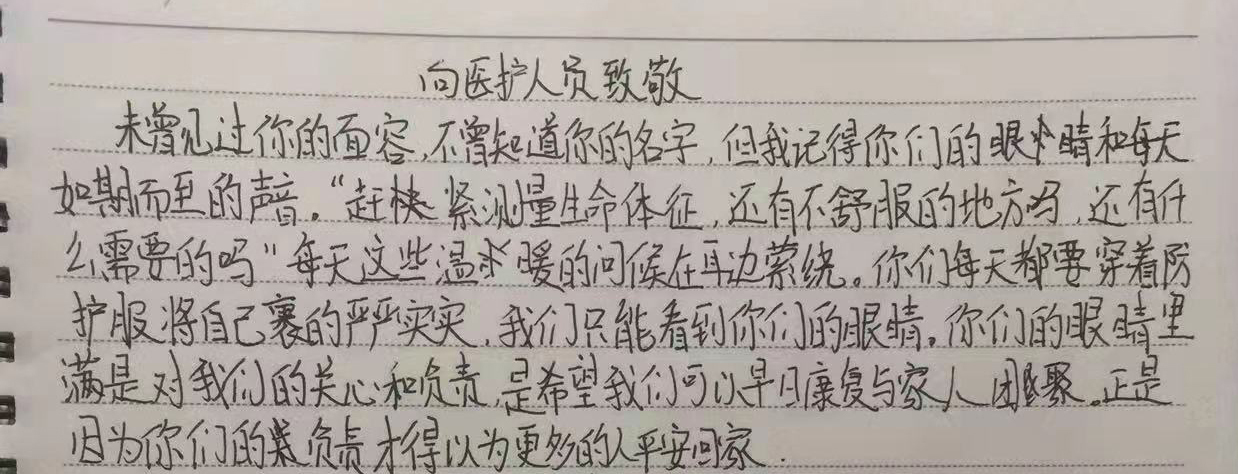 向医护人员致敬
未曾见过你的面容,不曾知道你的名字,但我记得你们的眼睛和每天
如期而至的声音。“赶快紧测量生命体征,还有不舒服的地方吗,还有什
么需要的吗"每天这些温暖的问候在耳边萦绕。你们每天都要穿着防
护服将自己裹的严严实实,我们只能看到你们的眼睛。你们的眼睛里
满是对我们的关心和负责,是希望我们可以早日康复与家人团聚。正是
因为你们的负责才得以为更多的人平安回家.